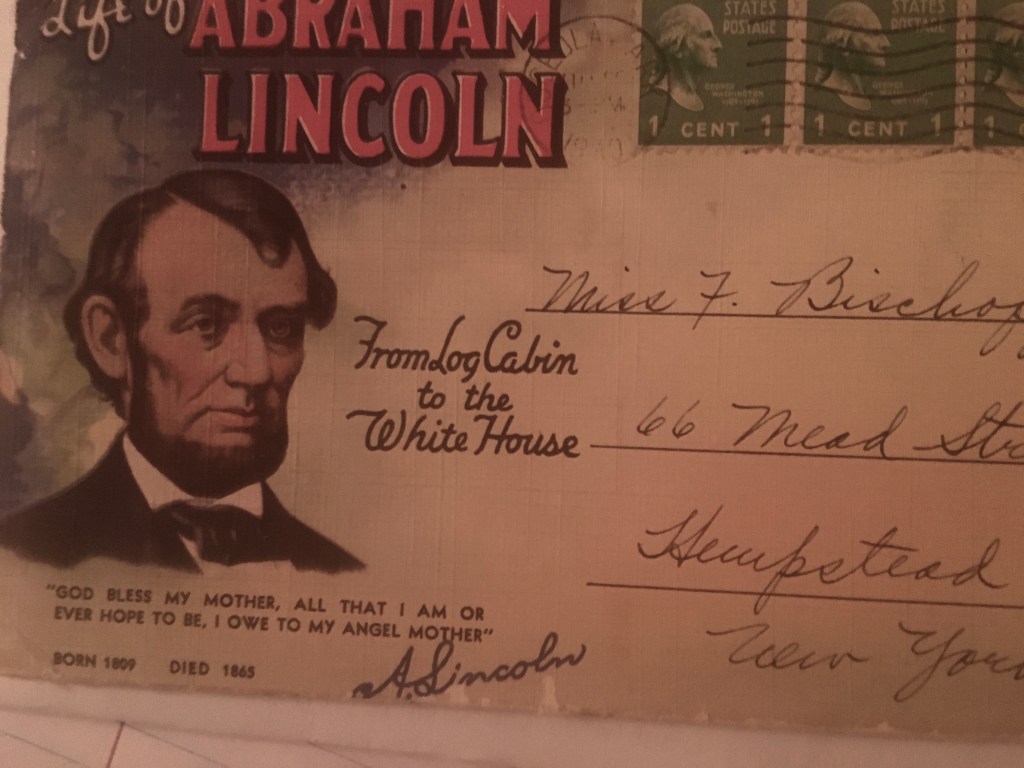 Life of
ABRAHAM
LINCOLN
STATES
POSTAGE
GEORGE
WASHINGTON
1 CENT 1
STATES
POSTAGE
GEORGE
WASHINGTON
1 CENT 1
1
Miss F. Bischof
From Log Cabin
to the
White House
66 Mead Str
Hempstead
New York
"GOD BLESS MY MOTHER, ALL THAT I AM OR
EVER HOPE TO BE, I OWE TO MY ANGEL MOTHER"
BORN 1809 DIED 1865
A. Lincoln